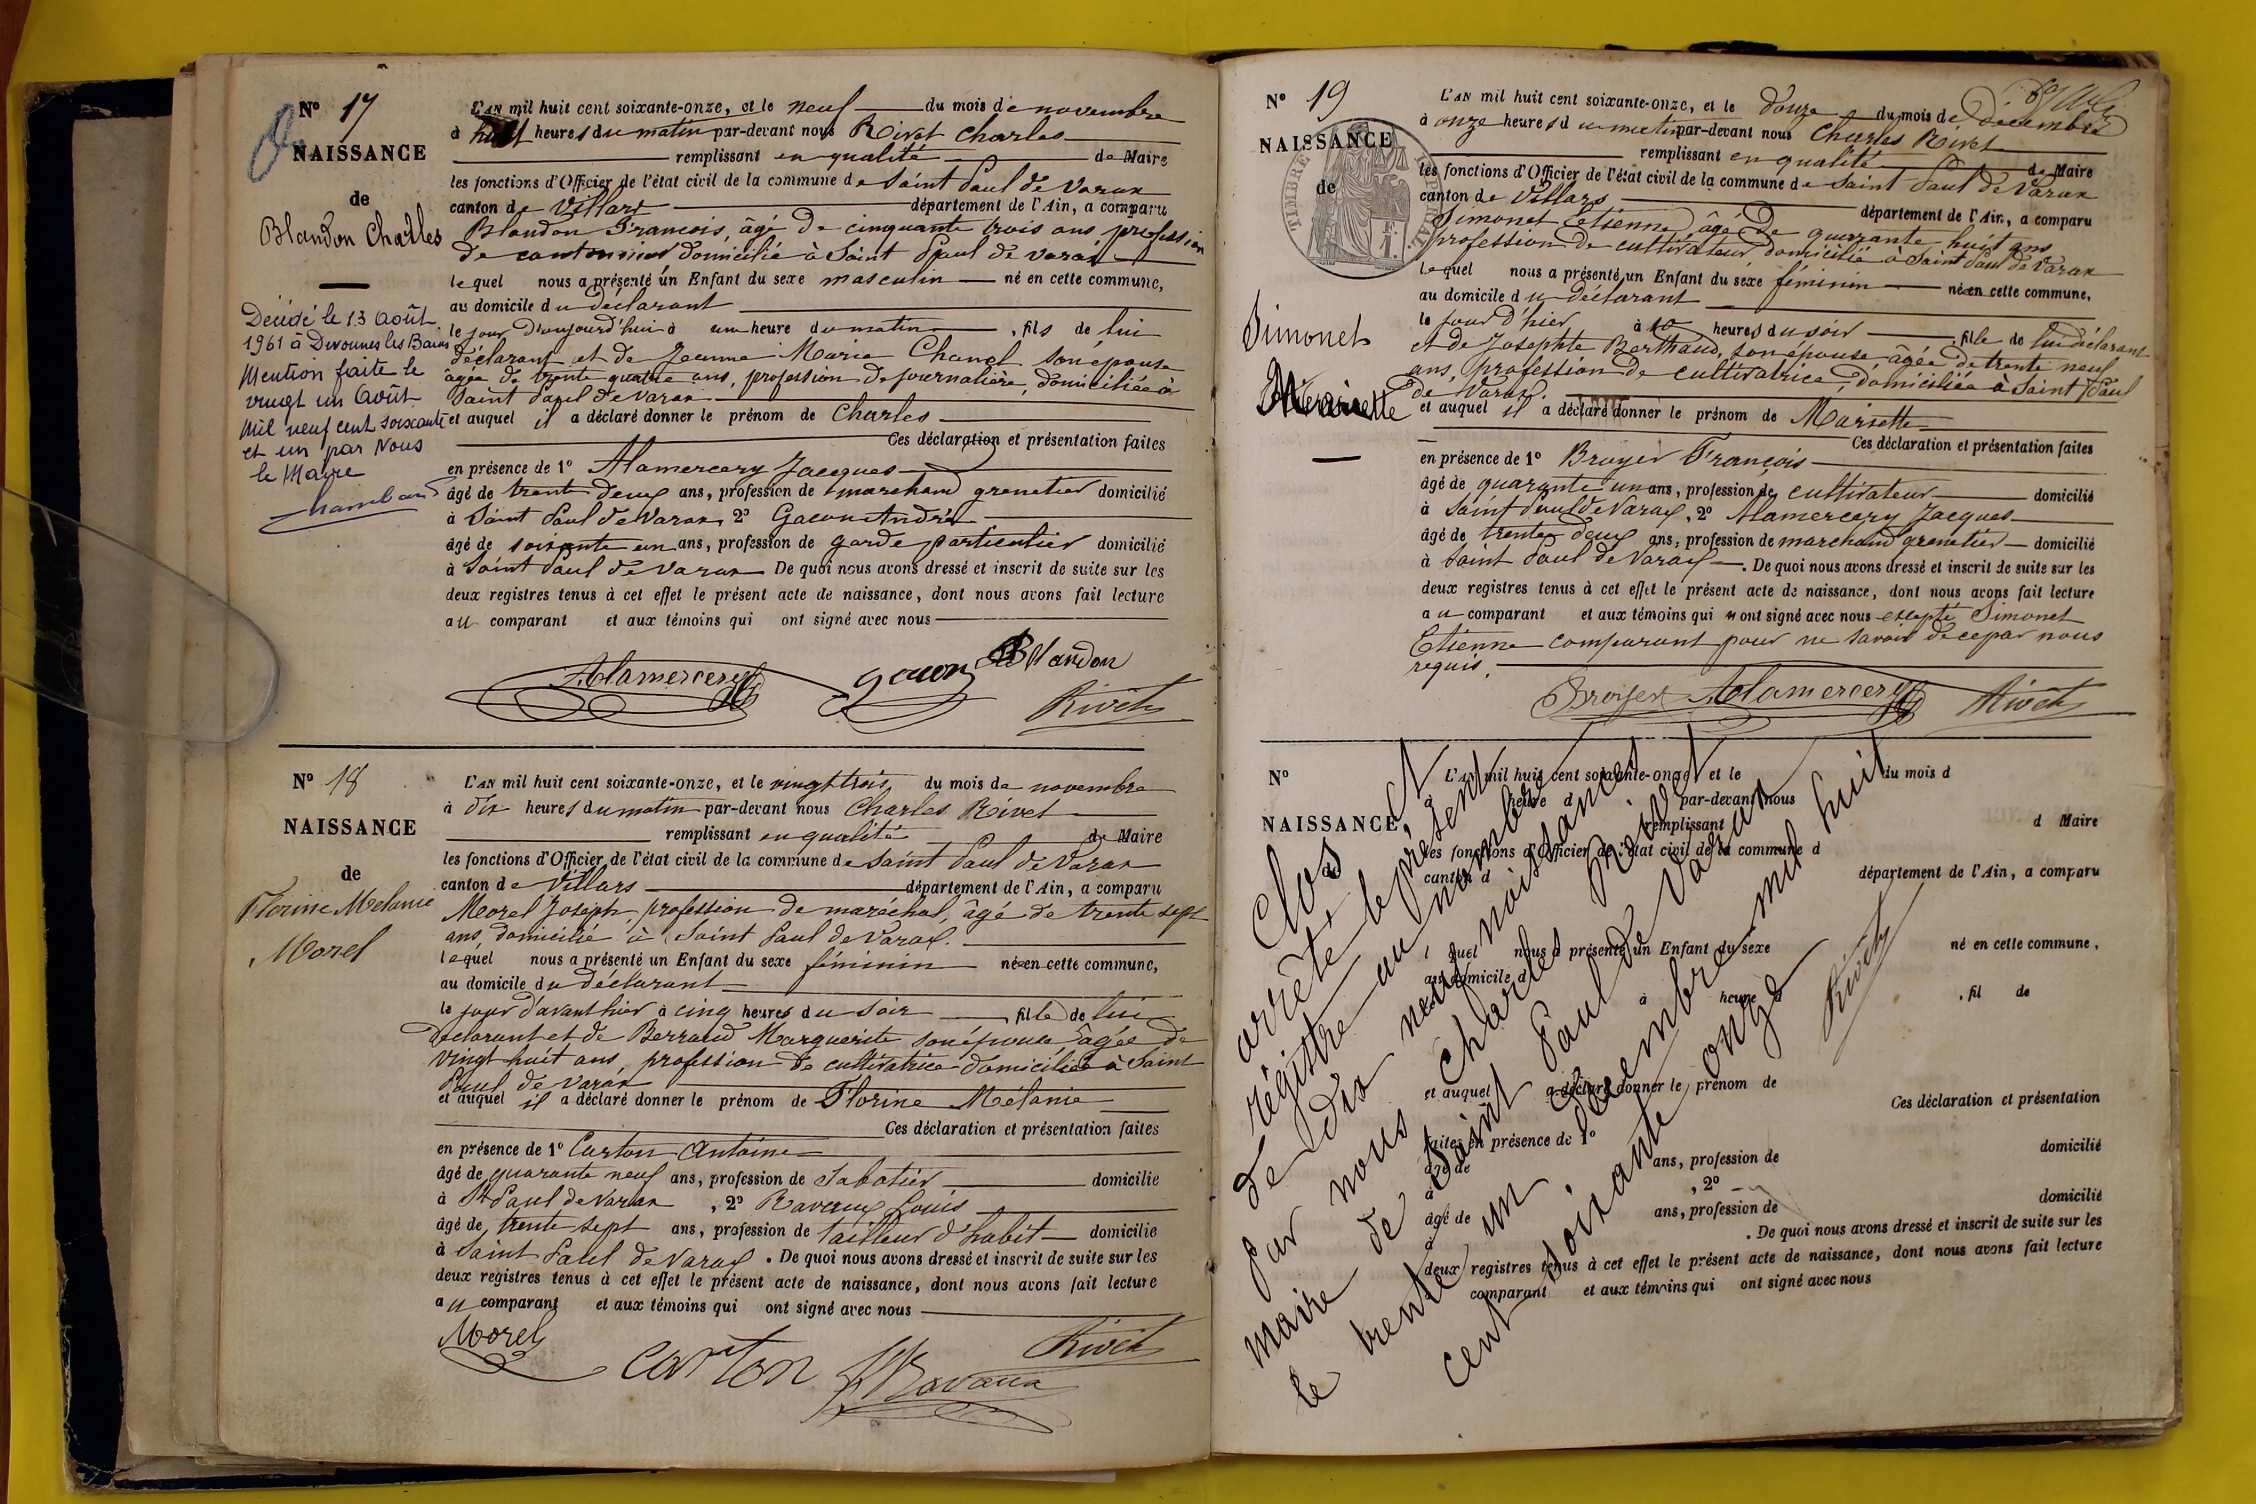 N° 17
NAISSANCE
de
Blandon Charles
Décédé le 13 Août
1961 à Divonnes les Bains
Mention faite le
vingt un Août
mil neuf cent soixante
et un par Nous
le Maire
L'AN mil huit cent soixante-onze, et le neuf du mois de novembre
à huit heures du matin par-devant nous Rivet Charles
remplissant en qualité de Maire
les fonctions d'Officier de l'état civil de la commune de Saint Paul de Varax
canton de Villars département de l'Ain, a comparu
Blandon Francois, âgé de cinquante trois ans profession
de cantonnier domicilié à Saint Paul de varax
lequel nous a présenté un Enfant du sexe masculin né en cette commune,
au domicile du déclarant
le jour d'aujourd'hui à une heure du matin, fils de lui
déclarant et de Jeanne Marie Chanel son épouse
âgée de trente quatre ans, profession de journalière, domiciliée à
Saint Paul de Varax
et auquel il a déclaré donner le prénom de Charles
Ces déclaration et présentation faites
en présence de 1° Alamercery Jacques
âgé de trente deux ans, profession de marchand grenetier domicilié
à Saint Paul de Varax 2° Gacon André
âgé de soixante un ans, profession de garde particulier domicilié
à Saint Paul de Varax De quoi nous avons dressé et inscrit de suite sur les
deux registres tenus à cet effet le présent acte de naissance, dont nous avons fait lecture
au comparant et aux témoins qui ont signé avec nous
Alamercery gacon Blandon
Rivet
N° 18
NAISSANCE
de
Florine Melanie
Morel
L'AN mil huit cent soixante-onze, et le vingt trois du mois de novembre
à dix heures du matin par-devant nous Charles Rivet
remplissant en qualité de Maire
les fonctions d'Officier de l'état civil de la commune de Saint Paul de Varax
canton de Villars département de l'Ain, a comparu
Morel Joseph, profession de maréchal, âgé de trente sept
ans, domicilié à Saint Paul de Varax.
lequel nous a présenté un Enfant du sexe féminin né en cette commune,
au domicile du déclarant
le jour d'avant hier à cinq heures du soir, fille de lui
déclarant et de Berraud Marguerite son épouse âgée de
vingt huit ans, profession de cultivatrice domiciliée à Saint
Paul de Varax
et auquel il a déclaré donner le prénom de Florine Mélanie
Ces déclaration et présentation faites
en présence de 1° Carton Antoine
âgé de quarante neuf ans, profession de Sabotier domicilié
à St Paul de Varax, 2° Ravaux Louis
âgé de trente sept ans, profession de tailleur d'habit domicilié
à Saint Paul de Varax. De quoi nous avons dressé et inscrit de suite sur les
deux registres tenus à cet effet le présent acte de naissance, dont nous avons fait lecture
au comparant et aux témoins qui ont signé avec nous
Morel Carton Ravaux Rivet
N° 19
NAISSANCE
de
TIMBRE IMPÉRIAL
Simonet
L'AN mil huit cent soixante-onze, et le douze du mois de décembre
à onze heures du matin par-devant nous Charles Rivet
remplissant en qualité de Maire
les fonctions d'Officier de l'état civil de la commune de Saint Paul de Varax
canton de Villars département de l'Ain, a comparu
Simonet Etienne, âgé de quarante huit ans
profession de cultivateur, domicilié à Saint Paul de Varax
lequel nous a présenté un Enfant du sexe féminin né en cette commune,
au domicile du déclarant
le jour d'hier à 10 heures du soir, fille de lui déclarant
et de Josephte Berthaud, son épouse âgée de trente neuf
ans, profession de cultivatrice, domiciliée à Saint Paul
de Varax.
et auquel il a déclaré donner le prénom de Mariette
Ces déclaration et présentation faites
en présence de 1° Broyer François
âgé de quarante un ans, profession de cultivateur domicilié
à Saint Paul de Varax, 2° Alamercery Jacques
âgé de trente deux ans, profession de marchand grenetier domicilié
à Saint Paul de Varax. De quoi nous avons dressé et inscrit de suite sur les
deux registres tenus à cet effet le présent acte de naissance, dont nous avons fait lecture
au comparant et aux témoins qui ont signé avec nous excepté Simonet
Etienne comparant pour ne savoir de ce par nous
requis.
Broyer Alamercery Rivet
N°
NAISSANCE
L'AN mil huit cent soixante-onze, et le du mois d
heure d par-devant nous
remplissant d Maire
les fonctions d'Officier de l'état civil de la commune d
canton d département de l'Ain, a comparu
lequel nous a présenté un Enfant du sexe né en cette commune,
au domicile d
à heure d, fil de
et auquel a déclaré donner le prénom de
Ces déclaration et présentation
faites en présence de 1°
âgé de ans, profession de domicilié
à, 2°
âgé de ans, profession de domicilié
à. De quoi nous avons dressé et inscrit de suite sur les
deux registres tenus à cet effet le présent acte de naissance, dont nous avons fait lecture
comparant et aux témoins qui ont signé avec nous
Clos et
arrêté le présent
régistre au nombre
de dix neuf naissances
par nous Charles Rivet
maire de Saint Paul de Varax
le trente un Décembre mil huit
cent soixante onze
Rivet